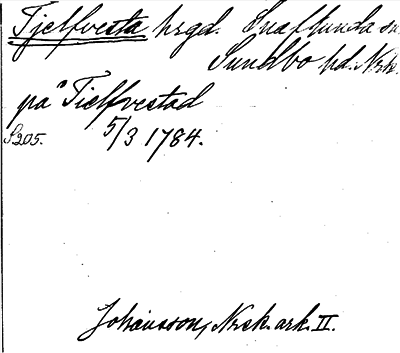 Tjelfvesta hrgd. Snaflunda sn.
Sundbo hd. Nrk.
på Tielfvestad
S205. 5/3 1784.
Johansson, Nrsk. ark. II.